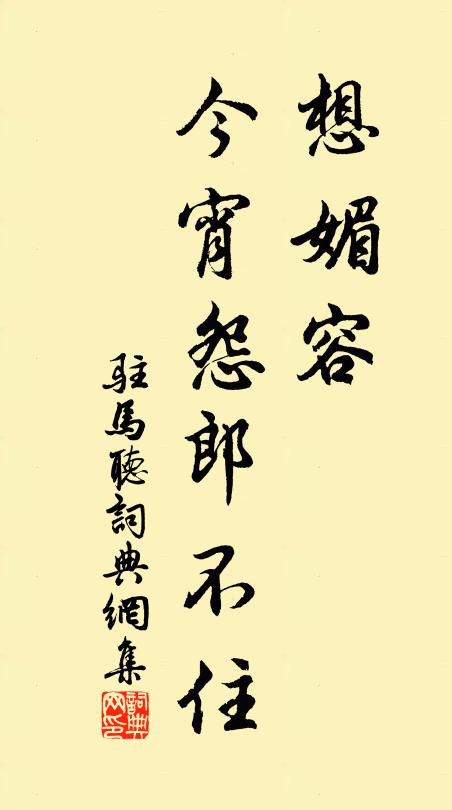 想媚容
今宵怨郎不住
駐馬聽詞典網集
詞典网印